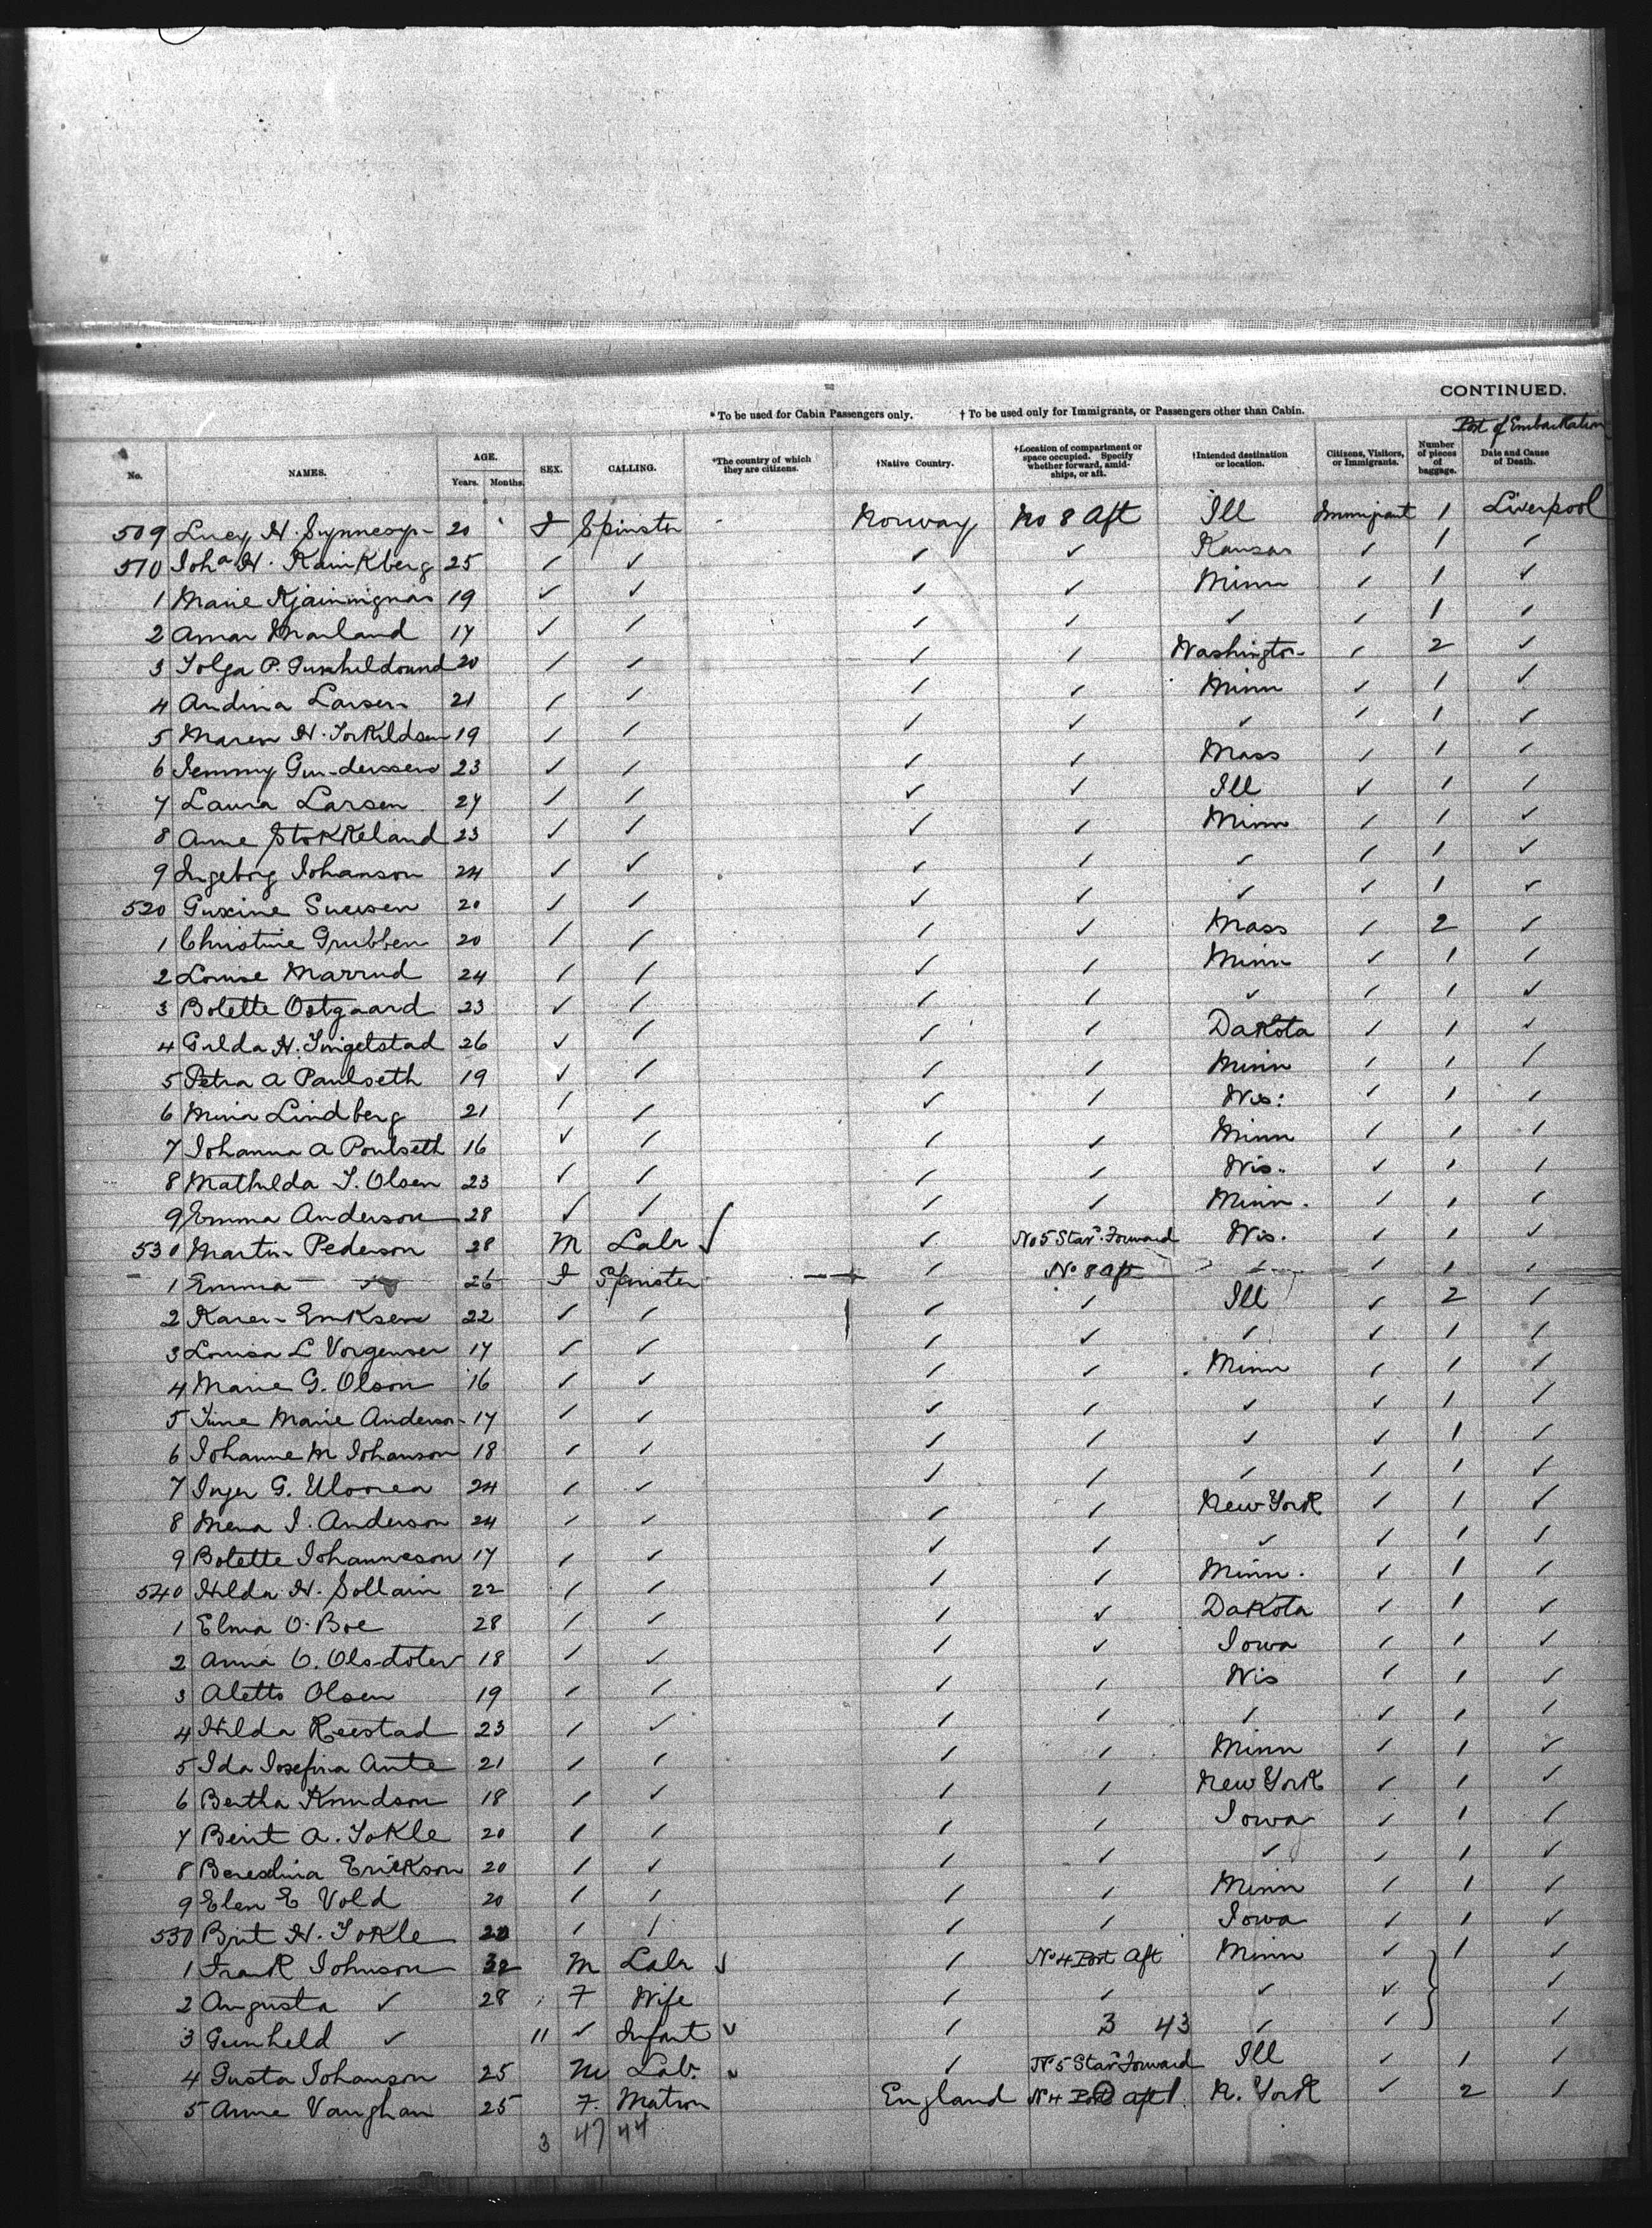 CONTINUED.
* To be used for Cabin Passengers only. † To be used only for Immigrants, or Passengers other than Cabin.
Port of Embarkation
No. NAMES. AGE. Years. Months. SEX. CALLING. *The country of which they are citizens. †Native Country. †Location of compartment or space occupied. Specify whether forward, amidships, or aft. †Intended destination or location. Citizens, Visitors, or Immigrants. Number of pieces of baggage. Date and Cause of Death.
509 Lucy H. 20 F Spinster Norway No 8 Aft Ill Immigrant 1 Liverpool
510 Joha H. 25 ✓ ✓ ✓ ✓ Kansas ✓ 1 ✓
1 Marie 19 ✓ ✓ ✓ ✓ Minn ✓ 1 ✓
2 Marland 17 ✓ ✓ ✓ ✓ ✓ ✓ 1 ✓
3 P. 20 ✓ ✓ ✓ ✓ Washington ✓ 2 ✓
4 Andina Larsen 21 ✓ ✓ ✓ ✓ Minn ✓ 1 ✓
5 Maren H. Torkildsen 19 ✓ ✓ ✓ ✓ ✓ ✓ 1 ✓
6 Gundersen 23 ✓ ✓ ✓ ✓ Mass ✓ 1 ✓
7 Laura Larsen 27 ✓ ✓ ✓ ✓ Ill ✓ 1 ✓
8 Anne Stokkeland 23 ✓ ✓ ✓ ✓ Minn ✓ 1 ✓
9 Ingeborg Johanson 24 ✓ ✓ ✓ ✓ ✓ ✓ 1 ✓
520 20 ✓ ✓ ✓ ✓ ✓ ✓ 1 ✓
1 Christine Grubben 20 ✓ ✓ ✓ ✓ Mass ✓ 2 ✓
2 Louise Marrud 24 ✓ ✓ ✓ ✓ Minn ✓ 1 ✓
3 Bolette Ostgaard 23 ✓ ✓ ✓ ✓ ✓ ✓ 1 ✓
4 Gulda H. 26 ✓ ✓ ✓ ✓ Dakota ✓ 1 ✓
5 Petra A Paulseth 19 ✓ ✓ ✓ ✓ Minn ✓ 1 ✓
6 Mina Lindberg 21 ✓ ✓ ✓ ✓ Wis: ✓ 1 ✓
7 Johanna A Poulseth 16 ✓ ✓ ✓ ✓ Minn ✓ 1 ✓
8 Mathilda J. Olsen 23 ✓ ✓ ✓ ✓ Wis. ✓ 1 ✓
9 Emma Anderson 28 ✓ ✓ ✓ ✓ Minn. ✓ 1 ✓
530 Martin Pederson 28 M Labr ✓ ✓ No 5 Star. Forward Wis. ✓ 1 ✓
1 Emma ✓ 26 F Spinster ✓ No 8 aft ✓ ✓ 1 ✓
2 Karen Eriksen 22 ✓ ✓ ✓ ✓ Ill ✓ 2 ✓
3 Louisa L Vorgensen 17 ✓ ✓ ✓ ✓ ✓ ✓ 1 ✓
4 Marie G. Olson 16 ✓ ✓ ✓ ✓ Minn ✓ 1 ✓
5 Marie Anderson 17 ✓ ✓ ✓ ✓ ✓ ✓ 1 ✓
6 Johanne M Johanson 18 ✓ ✓ ✓ ✓ ✓ ✓ 1 ✓
7 Inger G. 24 ✓ ✓ ✓ ✓ ✓ ✓ 1 ✓
8 Mena J. Anderson 24 ✓ ✓ ✓ ✓ New York ✓ 1 ✓
9 Bolette Johanneson 17 ✓ ✓ ✓ ✓ ✓ ✓ 1 ✓
540 Hilda H. Sollain 22 ✓ ✓ ✓ ✓ Minn. ✓ 1 ✓
1 Elma O. Boe 28 ✓ ✓ ✓ ✓ Dakota ✓ 1 ✓
2 Anna O. Olsdoter 18 ✓ ✓ ✓ ✓ Iowa ✓ 1 ✓
3 Aletto Olsen 19 ✓ ✓ ✓ ✓ Wis ✓ 1 ✓
4 Hilda Reestad 23 ✓ ✓ ✓ ✓ ✓ ✓ 1 ✓
5 Ida Josefina Ante 21 ✓ ✓ ✓ ✓ Minn ✓ 1 ✓
6 Bertha Knudson 18 ✓ ✓ ✓ ✓ New York ✓ 1 ✓
7 Berit A. Jokle 20 ✓ ✓ ✓ ✓ Iowa ✓ 1 ✓
8 Erickson 20 ✓ ✓ ✓ ✓ ✓ ✓ 1 ✓
9 Elen E Vold 20 ✓ ✓ ✓ ✓ Minn ✓ 1 ✓
550 Brit H. Jokle 20 ✓ ✓ ✓ ✓ Iowa ✓ 1 ✓
1 Frank Johnson 32 M Labr ✓ ✓ No 4 Port Aft Minn ✓ 1 ✓
2 Augusta ✓ 28 F Wife ✓ ✓ ✓ ✓ ✓
3 Gunheld ✓ 11 ✓ Infant ✓ ✓ 3 43 ✓ ✓ ✓
4 Gusta Johanson 25 M Lab. ✓ No 5 Star Forward Ill ✓ 1 ✓
5 Anne Vaughan 25 F. Matron England No 4 Port aft 1 N. York ✓ 2 ✓
3 47 44